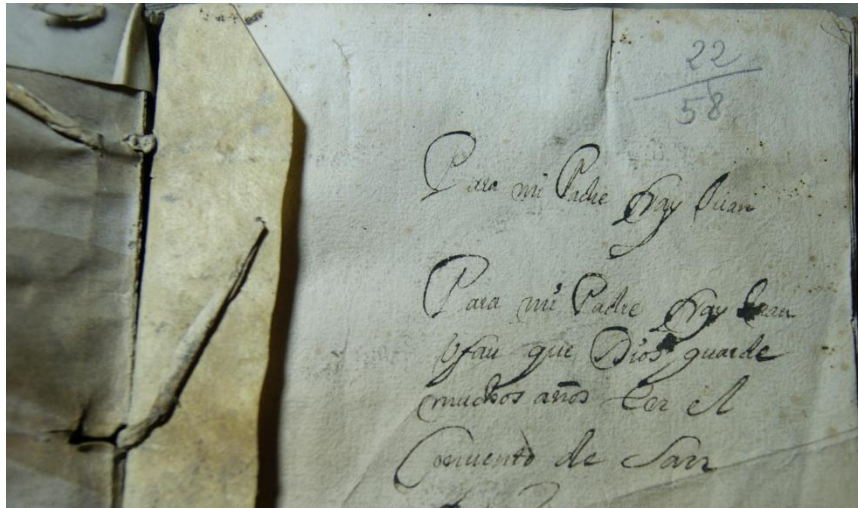 22
58
Para mi Padre fray Juan
Para mi Padre fray Juan
que Dios guarde
muchos años en el
Convento de San